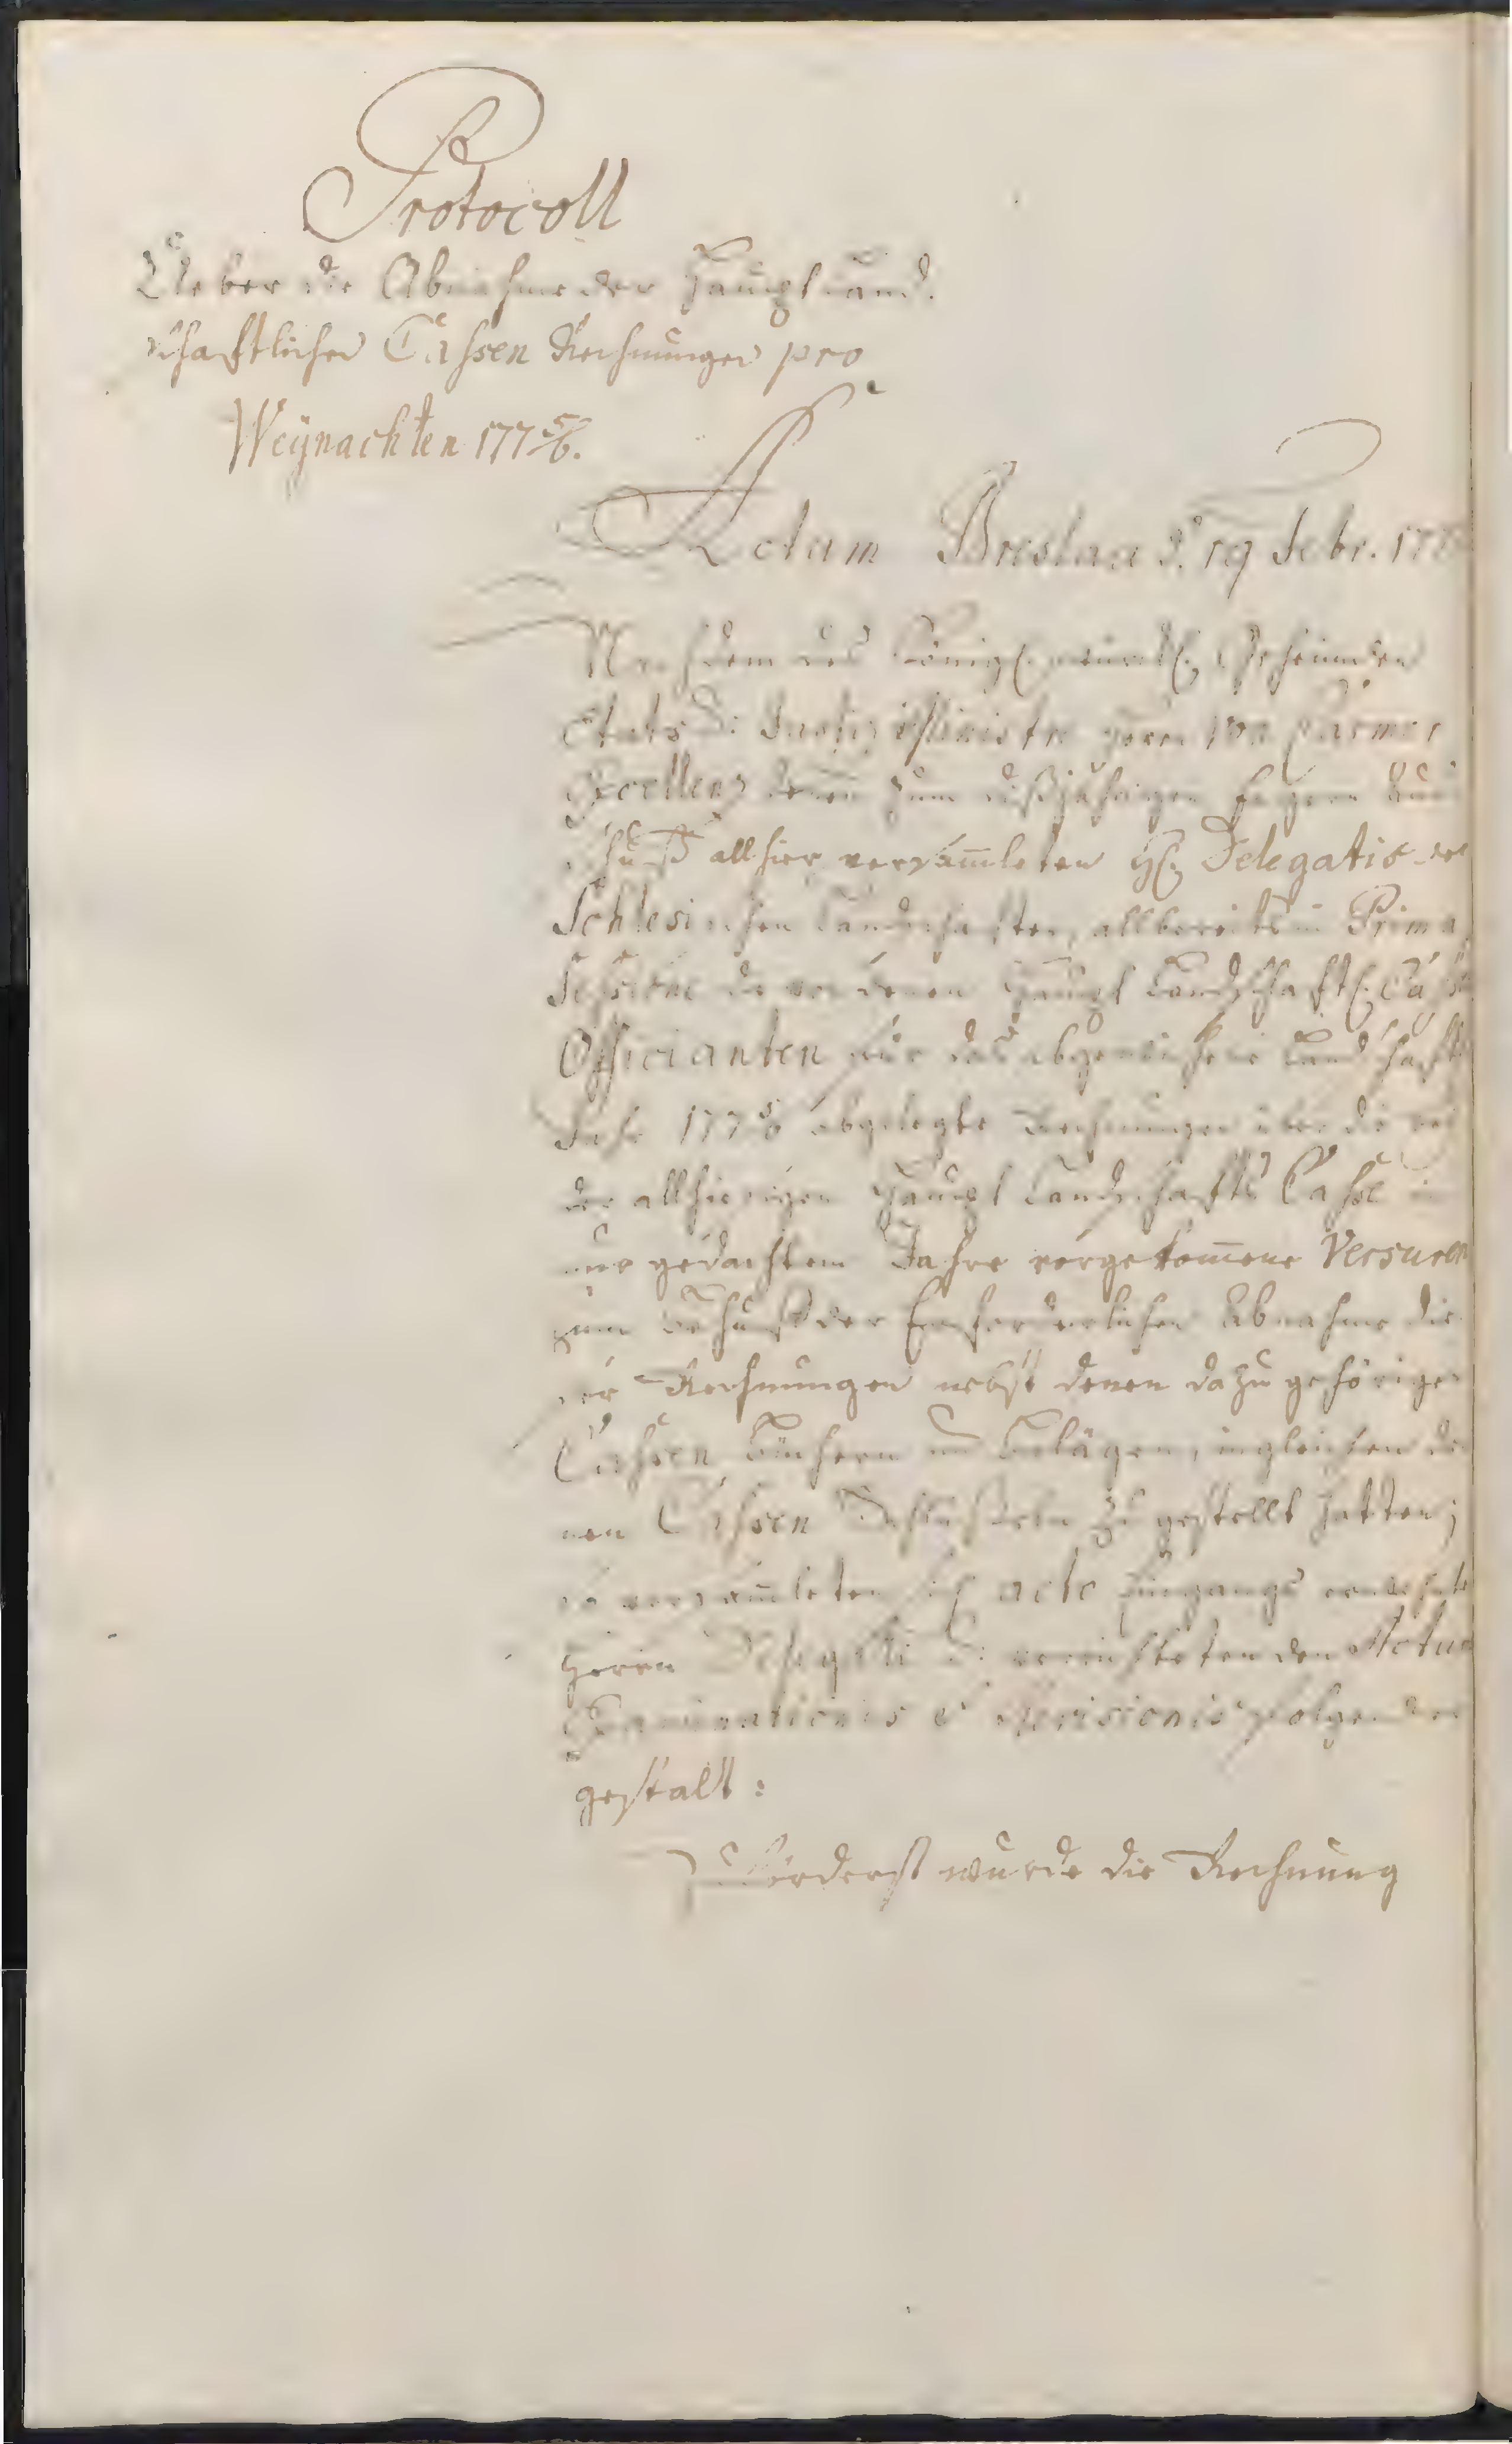 Protocoll
Ueber die Abnahme der Hauptland-
schaftlichen Cassen Rechnungen pro
Weÿnachten 177 5/6.
Actum Breslau d. 19 Febr. 177
Nachdem des Königl. würckl. Geheimden
Etats Justiz Ministre Herrn von Carmer
Excellenz denen zum dißjährigen engern Aus-
schuß allhier versam̅leten HE. Delegatis der
Schlesischen Landschaften, allbereits in Prima
Sessione die von denen Haupt Landschaftl. Cassen
Officianten für das abgewichene Landschafts
Jahr 177 5/6 abgelegte Rechnungen über die bei
der allhiesigen Haupt Landschafts Casse in
nur gedachtem Jahre vorgekom̅ene Versuren
zum Behuf der Erforderlichen Abnahme die-
ser Rechnungen nebst denen dazu gehörigen
Cassen Büchern und Belägen, ingleichen de-
nen Cassen zu gestellt hatten;
so versam̅leten sich acto Eingangs erwehnte
Herrn Delegati verrichteten den Actum
Examinationis & Revisionis folgender
gestalt:
Zuförderst wurde die Rechnung